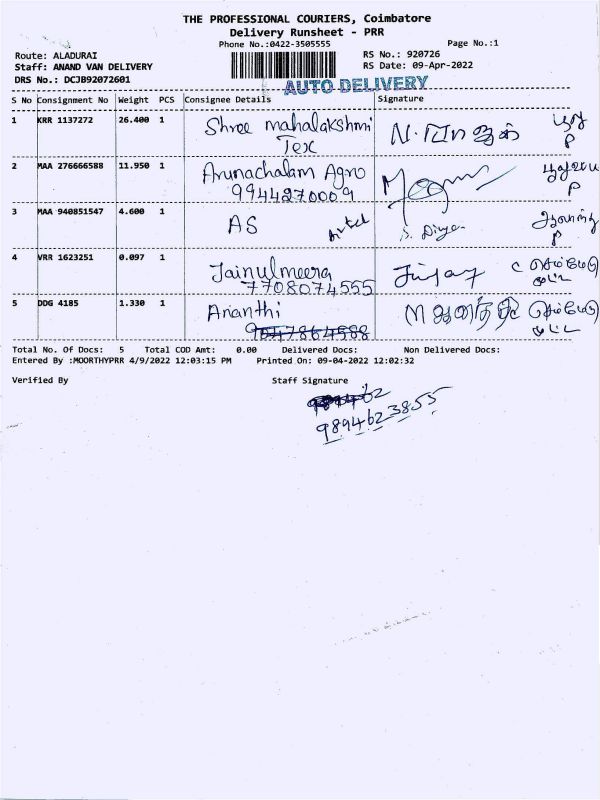 THE PROFESSIONAL COURIERS, Coimbatore
Delivery Runsheet - PRR
Phone No.:0422-3505555 Page No.:1
Route: ALADURAI RS No.: 920726
Staff: ANAND VAN DELIVERY RS Date: 09-Apr-2022
DRS No.: DCJB92072601
AUTO DELIVERY
S No Consignment No Weight PCS Consignee Details Signature
1 KRR 1137272 26.400 1 Shree mahalakshmi
Tex
2 MAA 276666588 11.950 1 Arunachalam Agro
9944270009
3 MAA 940851547 4.600 1 AS
S. Divya
4 VRR 1623251 0.097 1 Jainulmeera
7708074555
5 DDG 4185 1.330 1 Ananthi
Total No. Of Docs: 5 Total COD Amt: 0.00 Delivered Docs: Non Delivered Docs:
Entered By :MOORTHYPRR 4/9/2022 12:03:15 PM Printed On: 09-04-2022 12:02:32
Verified By Staff Signature
9894623855